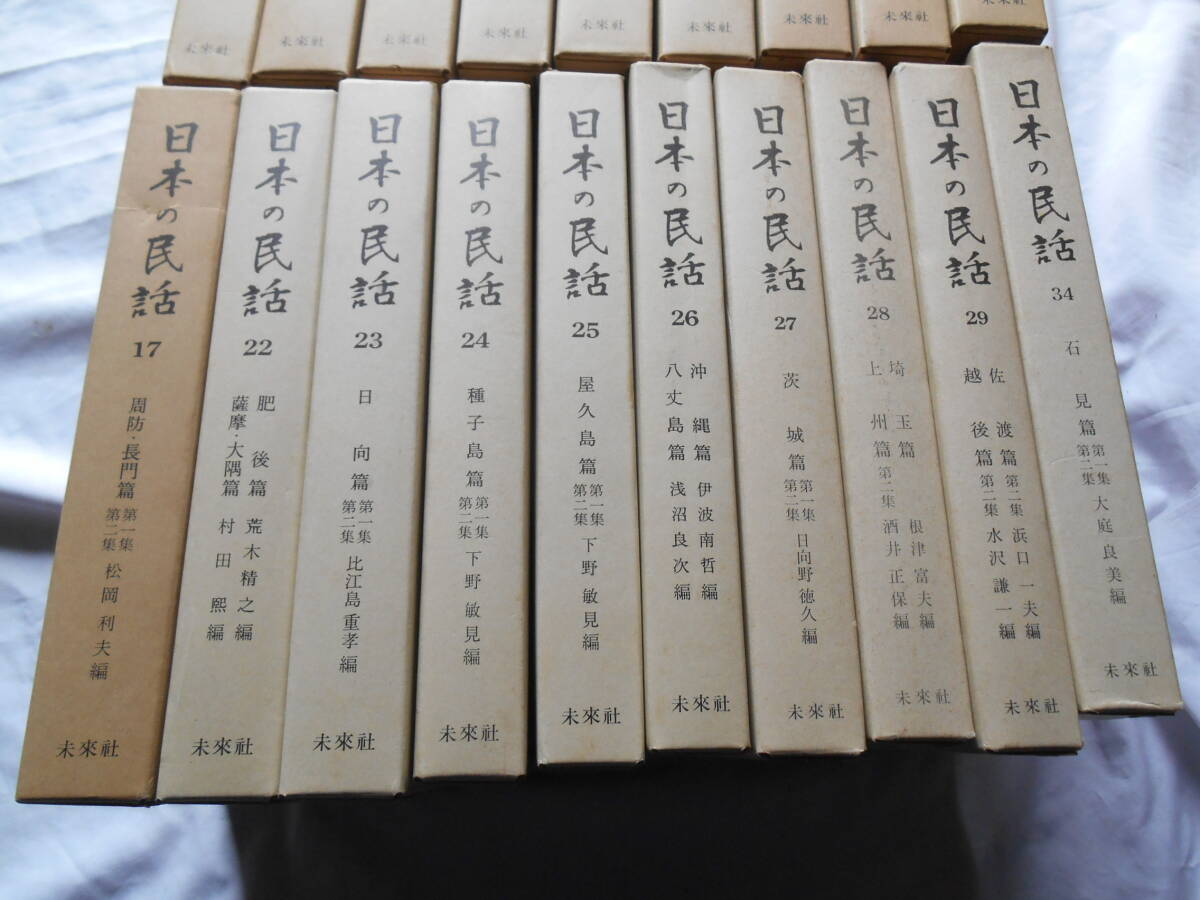 未來社
未來社
未來社
未來社
未來社
未來社
未來社
未來社
未來社
日本の民話
17
周防・長門篇 第一集 第二集 松岡利夫編
未來社
日本の民話
22
肥後篇 荒木精之編
薩摩・大隅篇 村田熙編
未來社
日本の民話
23
日向篇 第一集 第二集 比江島重孝編
未來社
日本の民話
24
種子島篇 第一集 第二集 下野敏見編
未來社
日本の民話
25
屋久島篇 第一集 第二集 下野敏見編
未來社
日本の民話
26
沖縄篇 伊波南哲編
八丈島篇 浅沼良次編
未來社
日本の民話
27
茨城篇 第一集 第二集 日向野徳久編
未來社
日本の民話
28
埼玉篇 根津富夫編
上州篇 第二集 酒井正保編
未來社
日本の民話
29
佐渡篇 第二集 浜口一夫編
越後篇 第二集 水沢謙一編
未來社
日本の民話
34
石見篇 第一集 第二集 大庭良美編
未來社